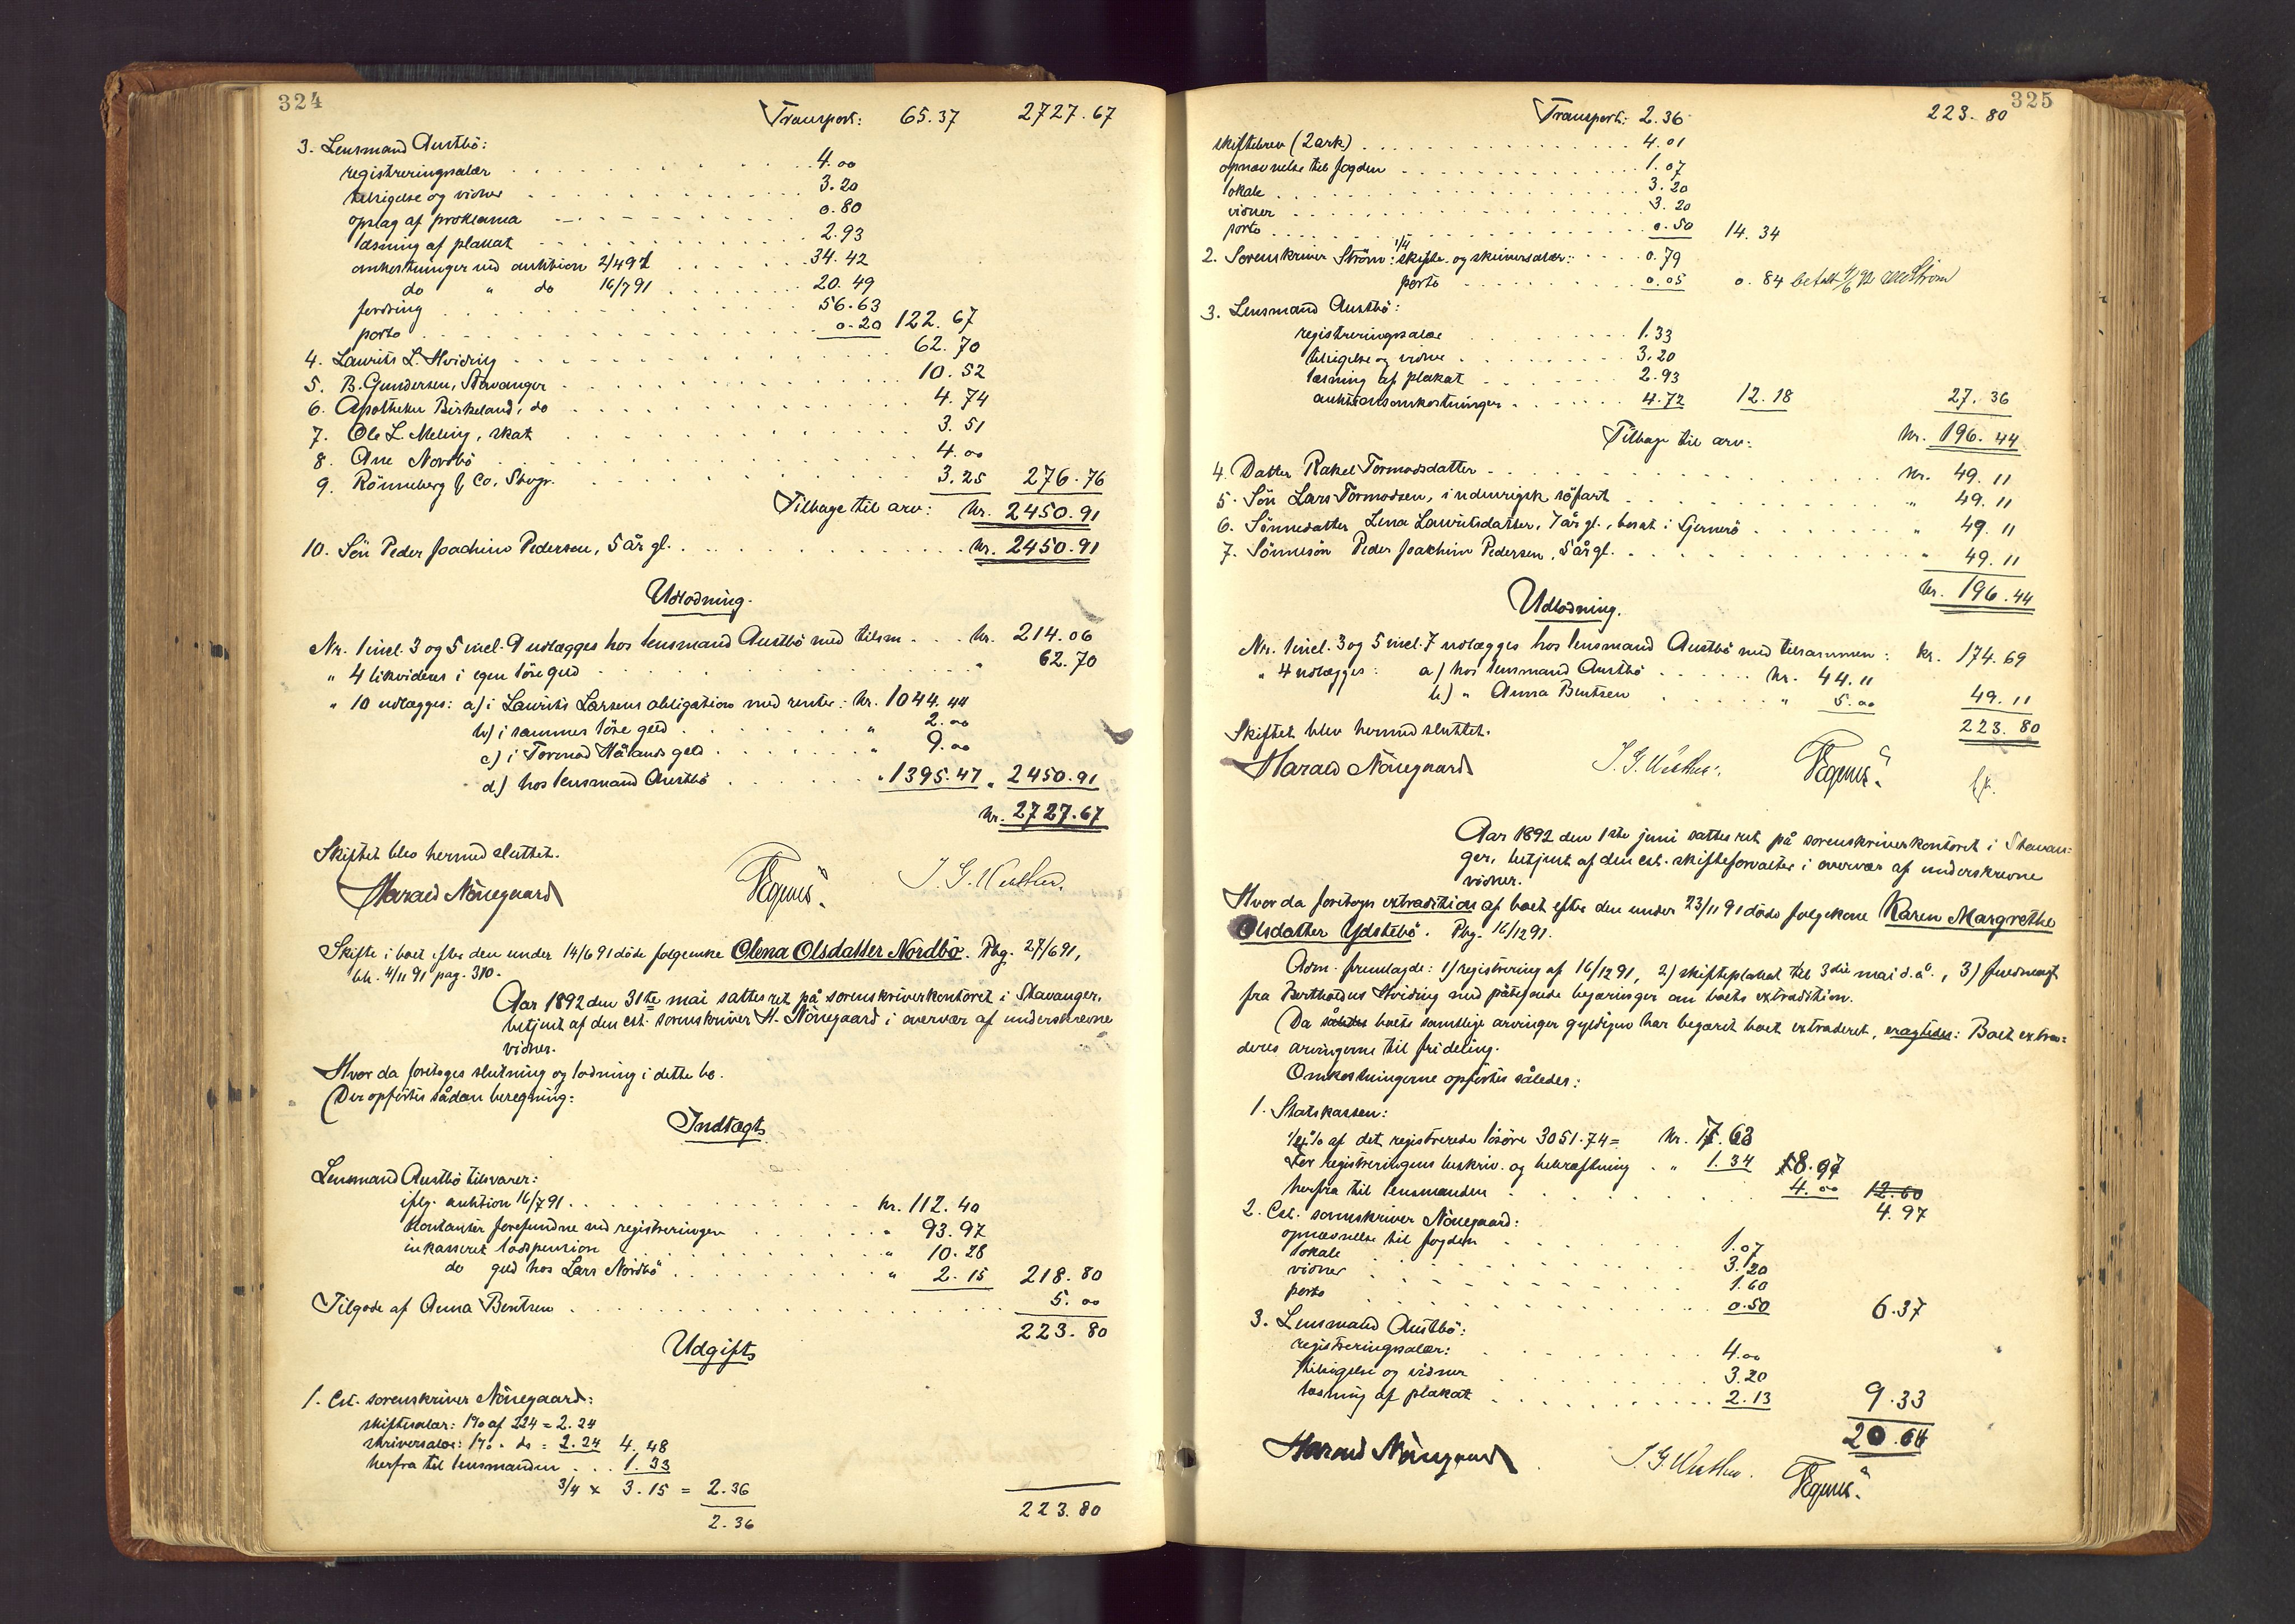 324
Transport: 65.37 2727.67
3. Lensmand Austbö:
registreringssalær 4.00
tilsigelse og vidner 3.20
opslag af proklama 0.80
læsning af plakat 2.93
omkostninger ved auktion 2/491 34.42
do " do 16/791 20.49
fordring 56.63
porto 0.20 122.67
4. Laurits L. Hviding 62.70
5. B. Gundersen, Stavanger 10.52
6. Apotheker Birkeland, do 4.74
7. Ole L. Meling, skat 3.51
8. Ane Nordbö 4.00
9. Rönneberg & Co, Stvgr. 3.25 276.76
Tilbage til arv: kr. 2450.91
10. Sön Peder Joachim Pedersen, 5 år gl. kr. 2450.91
Udlodning.
Nr. 1 incl. 3 og 5 incl. 9 udlægges hos lensmand Austbö med tilsm. kr. 214.06
" 4 likvideres i egen löse gjeld " 62.70
" 10 udlægges: a) i Laurits Larsens obligation med renter: kr. 1044.44
b) i sammes löse gjeld " 2.00
c) i Tormod Hålands gjeld " 9.00
d) hos lensmand Austbö " 1395.47 " 2450.91
kr. 2727.67
Skiftet blev hermed sluttet.
Harald Nörregaard J. G. Westher.
Skifte i boet efter den under 14/6 91 döde folgeenke Olena Olsdatter Nordbö. Pbg. 27/6 91,
bh. 4/11 91 pag. 310.
Aar 1892 den 31te mai sattes ret på sorenskriverkontoret i Stavanger,
betjent af den cst. sorenskriver H. Nörregaard i overvær af underskrevne
vidner.
Hvor da foretoges slutning og lodning i dette bo.
Der opförtes sådan beregning:
Indtægt
Lensmand Austbö tilsvarer:
iflg. auktion 16/7 91 kr. 112.40
Kontanter forefundne ved registreringen " 93.97
inkasseret lodspension " 10.28
do gjeld hos Lars Nordbö " 2.15 218.80
Tilgode af Anna Bentsen 5.00
223.80
Udgift
1. Cst. sorenskriver Nörregaard:
skiftesalær: 1% af 224 = 2.24
skriversalær: 1% " do = 2.24 4.48
herfra til lensmanden 1.33
3/4 x 3.15 = 2.36
2.36 223.80
325
Transport: 2.36 223.80
skiftebrev (2 ark) 4.01
opnævnelse til fogden 1.07
lokale 3.20
vidner 3.20
porto 0.50 14.34
2. Sorenskriver Ström: 1/4 skifte- og skriversalær: 0.79
porto 0.05 0.84 betalt
3. Lensmand Austbö:
registreringssalær 1.33
tilsigelse og vidner 3.20
læsning af plakat 2.93
auktionsomkostninger 4.72 12.18 27.36
Tilbage til arv: kr. 196.44
4. Datter Rakel Tormodsdatter kr. 49.11
5. Sön Lars Tormodsen, i udenrigsk söfart " 49.11
6. Sönnedatter Lena Lauritsdatter, 7 år gl., bosat i Gjernerö " 49.11
7. Sönnesön Peder Joachim Pedersen, 5 år gl. " 49.11
kr. 196.44
Udlodning.
Nr. 1 incl. 3 og 5 incl. 7 udlægges hos lensmand Austbö med tilsammen: kr. 174.69
" 4 udlægges: a) hos lensmand Austbö kr. 44.11
b) " Anna Bentsen " 5.00 49.11
Skiftet blev hermed sluttet. 223.80
Harald Nörregaard J. G. Westher.
Aar 1892 den 1ste juni sattes ret på sorenskriverkontoret i Stavan-
ger, betjent af den cst. skifteforvalter i overvær af underskrevne
vidner.
Hvor da foretoges extradition af boet efter den under 23/11 91 döde folgekone Karen Margrethe
Olsdatter Ydstebö. Pbg. 16/12 91.
Adm. fremlagde: 1) registrering af 16/12 91, 2) skifteplakat til 3die mai d.a., 3) fuldmagt
fra Bertholdus Hviding med påtegnede begjæringer om boets extradition.
Da således boets samtlige arvinger gyldigen har begjæret boet extraderet, eragtedes: Boet extra-
deres arvingerne til frideling.
Omkostningerne opförtes således:
1. Statskassen:
1/4 % af det registrerede lösöre 3051.74 = kr. 7.63
For registreringens beskriv. og bekræftning " 1.34 8.97
herfra til lensmanden 4.00 12.60
4.97
2. Cst. sorenskriver Nörregaard:
opnævnelse til fogden 1.07
lokale 3.20
vidner 1.60
porto 0.50 6.37
3. Lensmand Austbö:
registreringssalær: 4.00
tilsigelse og vidner 3.20
læsning af plakat 2.13 9.33
20.64
Harald Nörregaard J. G. Westher.